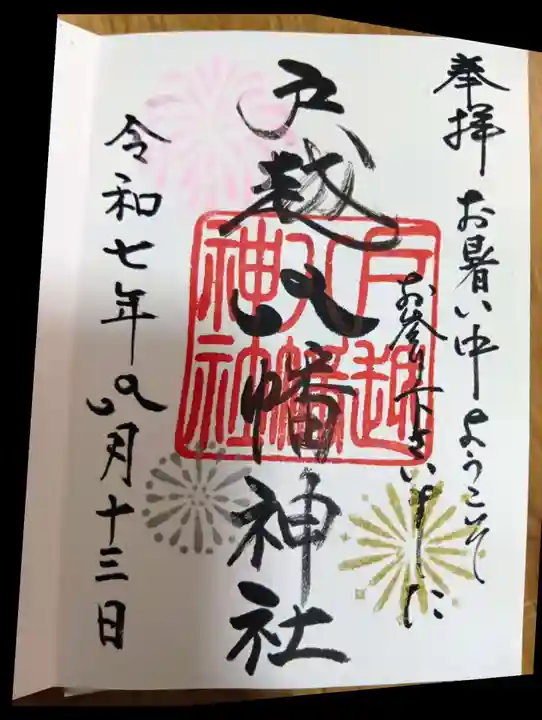 奉拝 お暑い中ようこそ
お参り下さいました
戸越八幡神社
戸越
八幡
神社
令和七年八月十三日